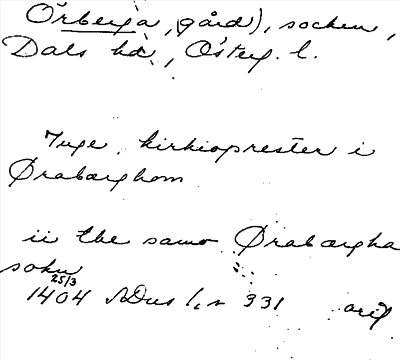 Örberga, gård), socken,
Dals hd, Österg. l.
Inge, kirkioprester i
Ørabærghom
ii the samo Ørabærgha
sokn
25/3
1404 SDns 1, n 331 orig